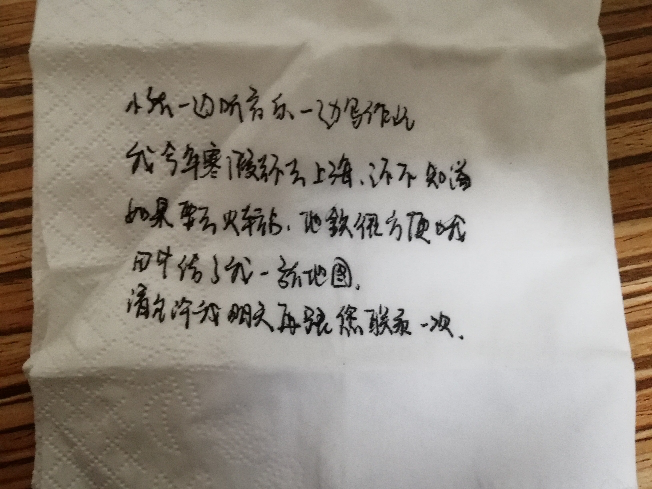 小张一边听音乐一边写作业
我今年寒假环去上海,还不知道
如果要去火车站,地铁很方便哦
田中借了我一张地图.
请允许我明天再跟您联系一次.